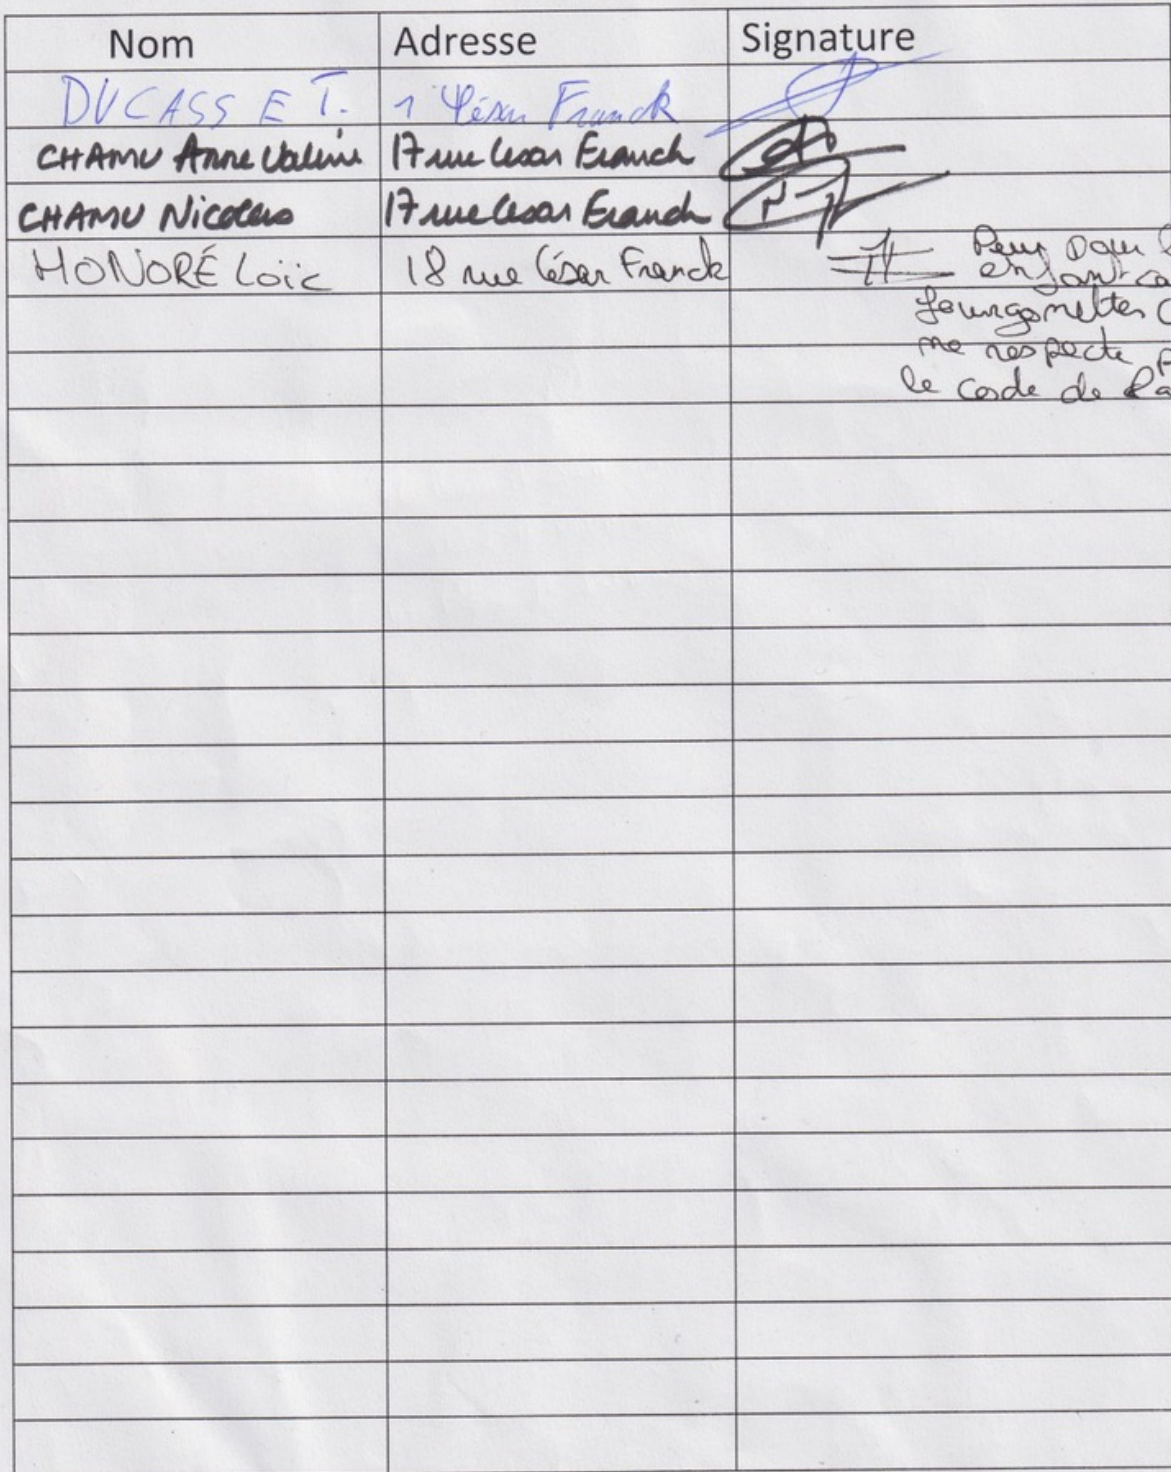 Nom Adresse Signature
DUCASSE T. 1 César Franck
CHAMU Anne Valérie 17 rue César Franck
CHAMU Nicolas 17 rue César Franck
HONORÉ Loïc 18 rue César Franck
Peur pour
enfant
fourgonnettes
ne respecte
le code de la